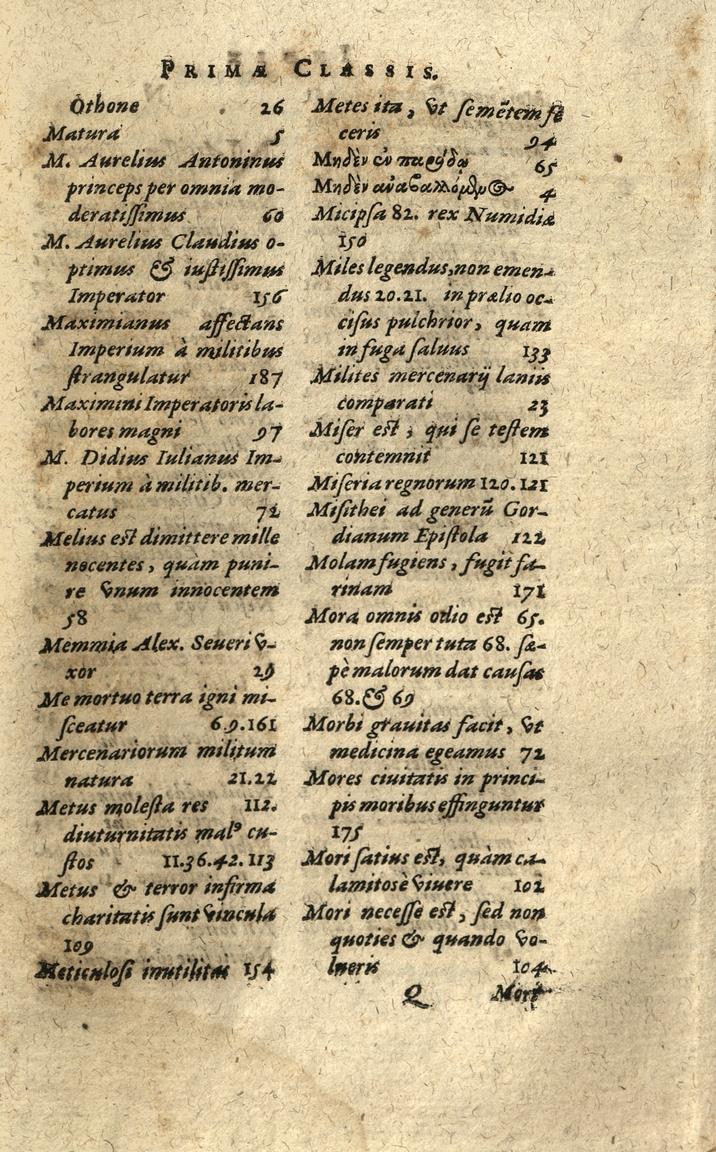 PRIMÆ CLASSIS.
Othone 26
Matura 5
M. Aurelius Antoninus
princeps per omnia mo-
deratissimus 60
M. Aurelius Claudius o-
ptimus & iustissimus
Imperator 156
Maximianus affectans
Imperium à militibus
strangulatur 187
Maximini Imperatoris la-
bores magni 97
M. Didius Iulianus Im-
perium à militib. mer-
catus 72
Melius est dimittere mille
nocentes, quàm puni-
re vnum innocentem
58
Memmia Alex. Seueri v-
xor 29
Me mortuo terra igni mi-
sceatur 6.9.161
Mercenariorum militum
natura 21.22
Metus molesta res 112.
diuturnitatis mal⁹ cu-
stos 11.36.42.113
Metus & terror infirma
charitatis sunt vincula
109
Meticulosi inutilitas 154
Metes ita, vt semẽtem fe
ceris 94
Μηδὲν ἐν παρόδῳ 65
Μηδὲν ἀναβαλλόμενος 4
Micipsa 82. rex Numidiæ
150
Miles legendus, non emen-
dus 20.21. in prælio oc-
cisus pulchrior, quam
in fuga saluus 133
Milites mercenarij laniis
comparati 23
Miser est, qui se testem
contemnit 121
Miseria regnorum 120.121
Misithei ad generũ Gor-
dianum Epistola 122
Molam fugiens, fugit fa-
rinam 171
Mora omnis odio est 65.
non semper tuta 68. sæ-
pè malorum dat causas
68. & 69
Morbi grauitas facit, vt
medicina egeamus 72
Mores ciuitatis in princi-
pis moribus effinguntur
175
Mori satius est, quàm ca-
lamitosè viuere 102
Mori necesse est, sed non
quoties & quando vo-
lueris 104
Q Mori